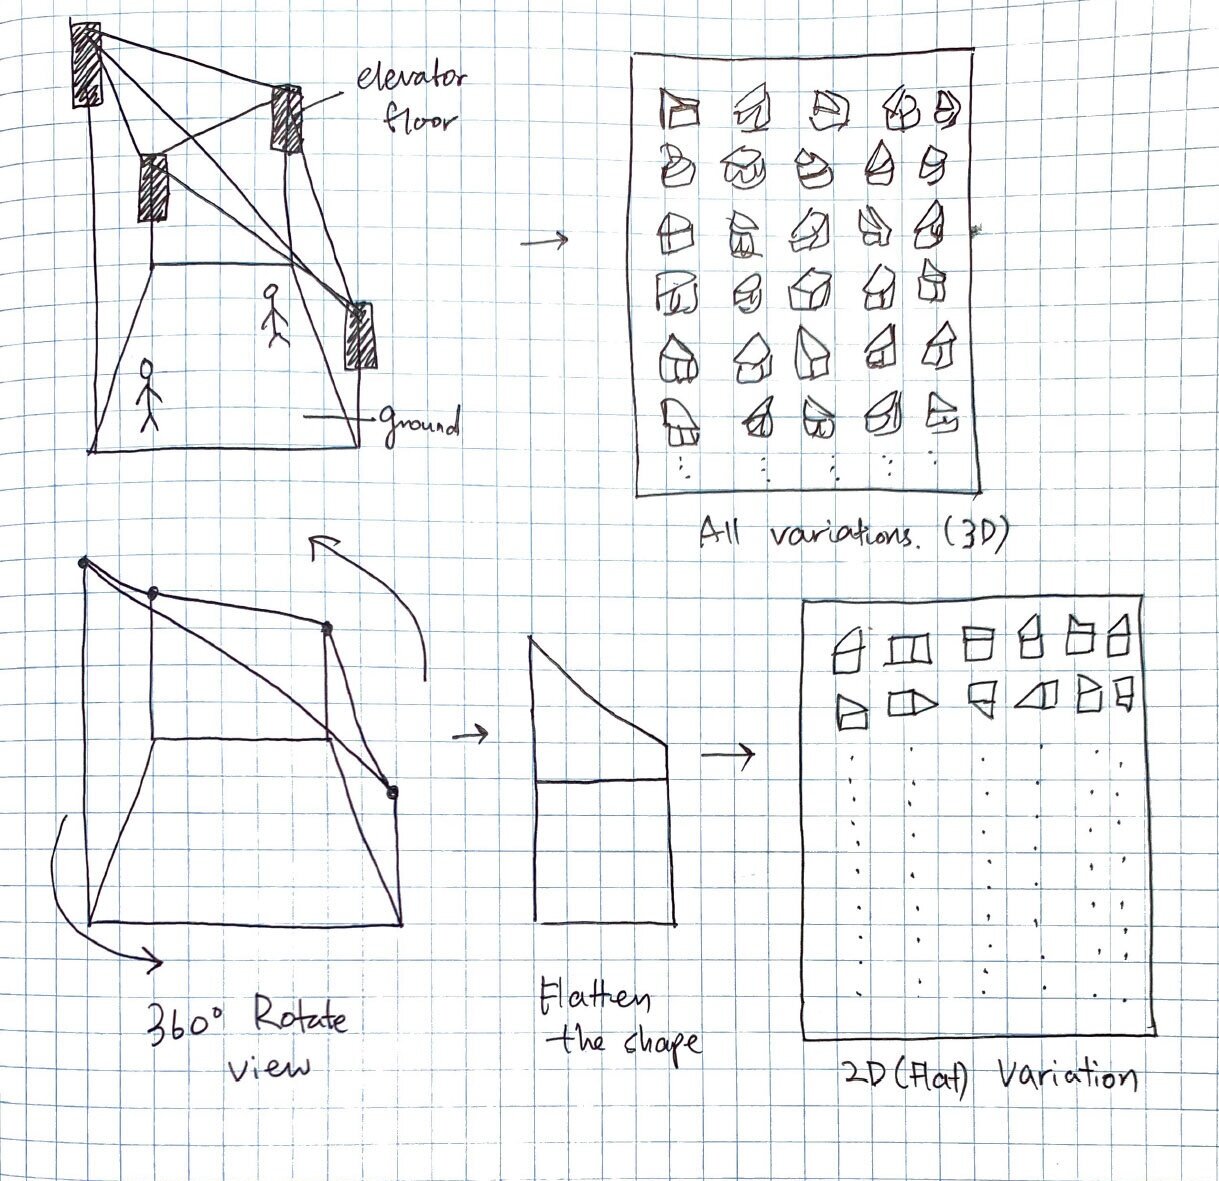 elevator
floor
ground
All variations. (3D)
360° Rotate
view
Flatten
the shape
2D (Flat) Variation